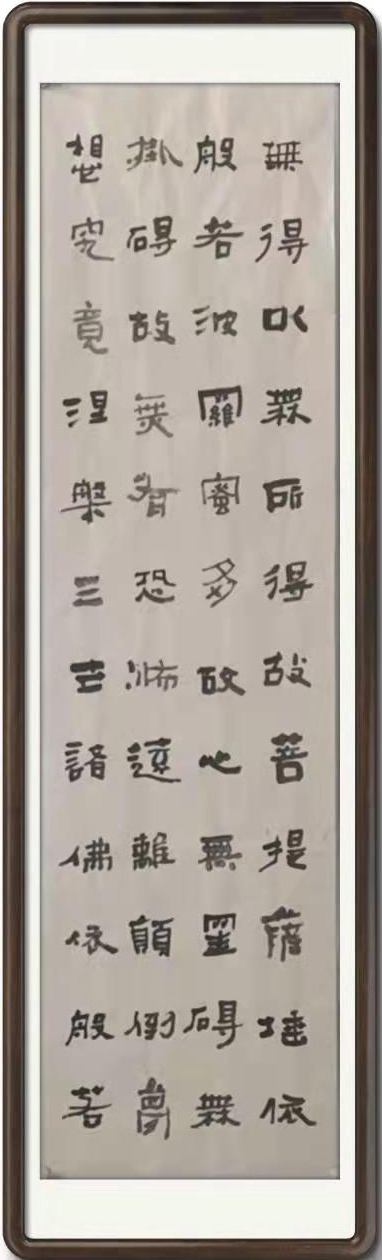 無得以無所得故菩提薩埵依
般若波羅蜜多故心無罣碍無
掛碍故無有恐怖遠離顛倒夢
想究竟涅槃三世諸佛依般若